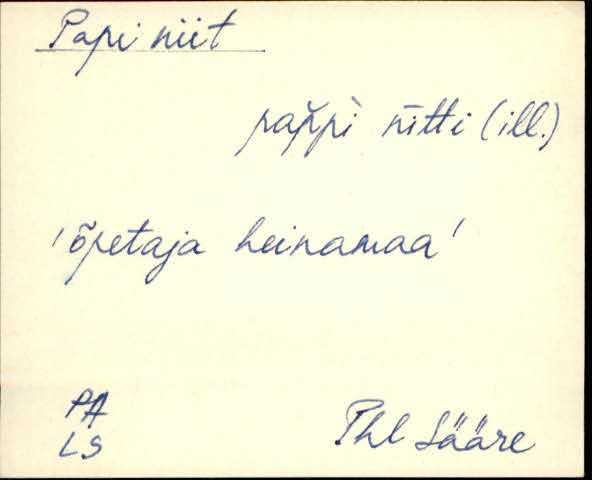 Papi niit
pap̆pì ǹitti (ill.)
'õpetaja heinamaa'
PA
LS
Phl Sääre